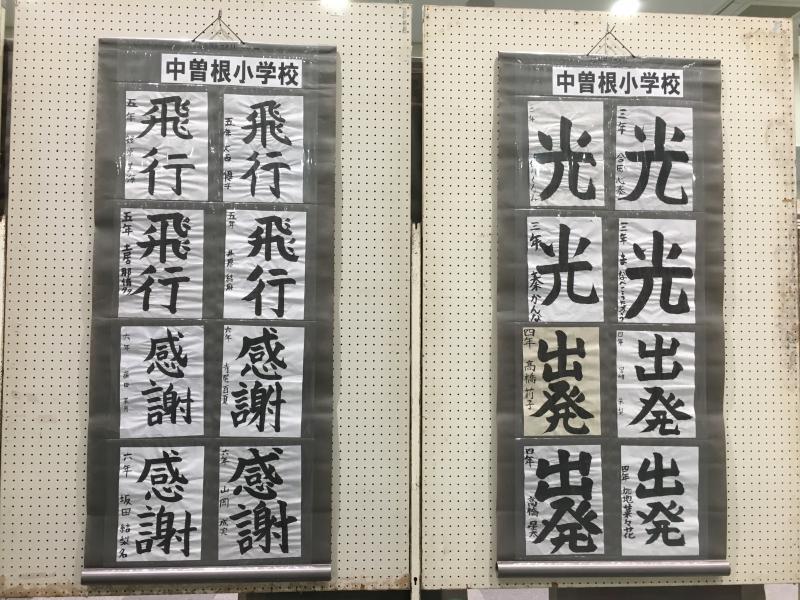 中曽根小学校
飛行
五年
飛行
五年
飛行
五年
飛行
五年
感謝
六年
感謝
六年
感謝
六年 坂田 結梨名
感謝
六年 山岡
中曽根小学校
光
三年
光
三年
光
三年 秦かんな
光
三年
出発
四年 高橋 莉子
出発
四年
出発
四年 高橋
出発
四年 加地 葉々花